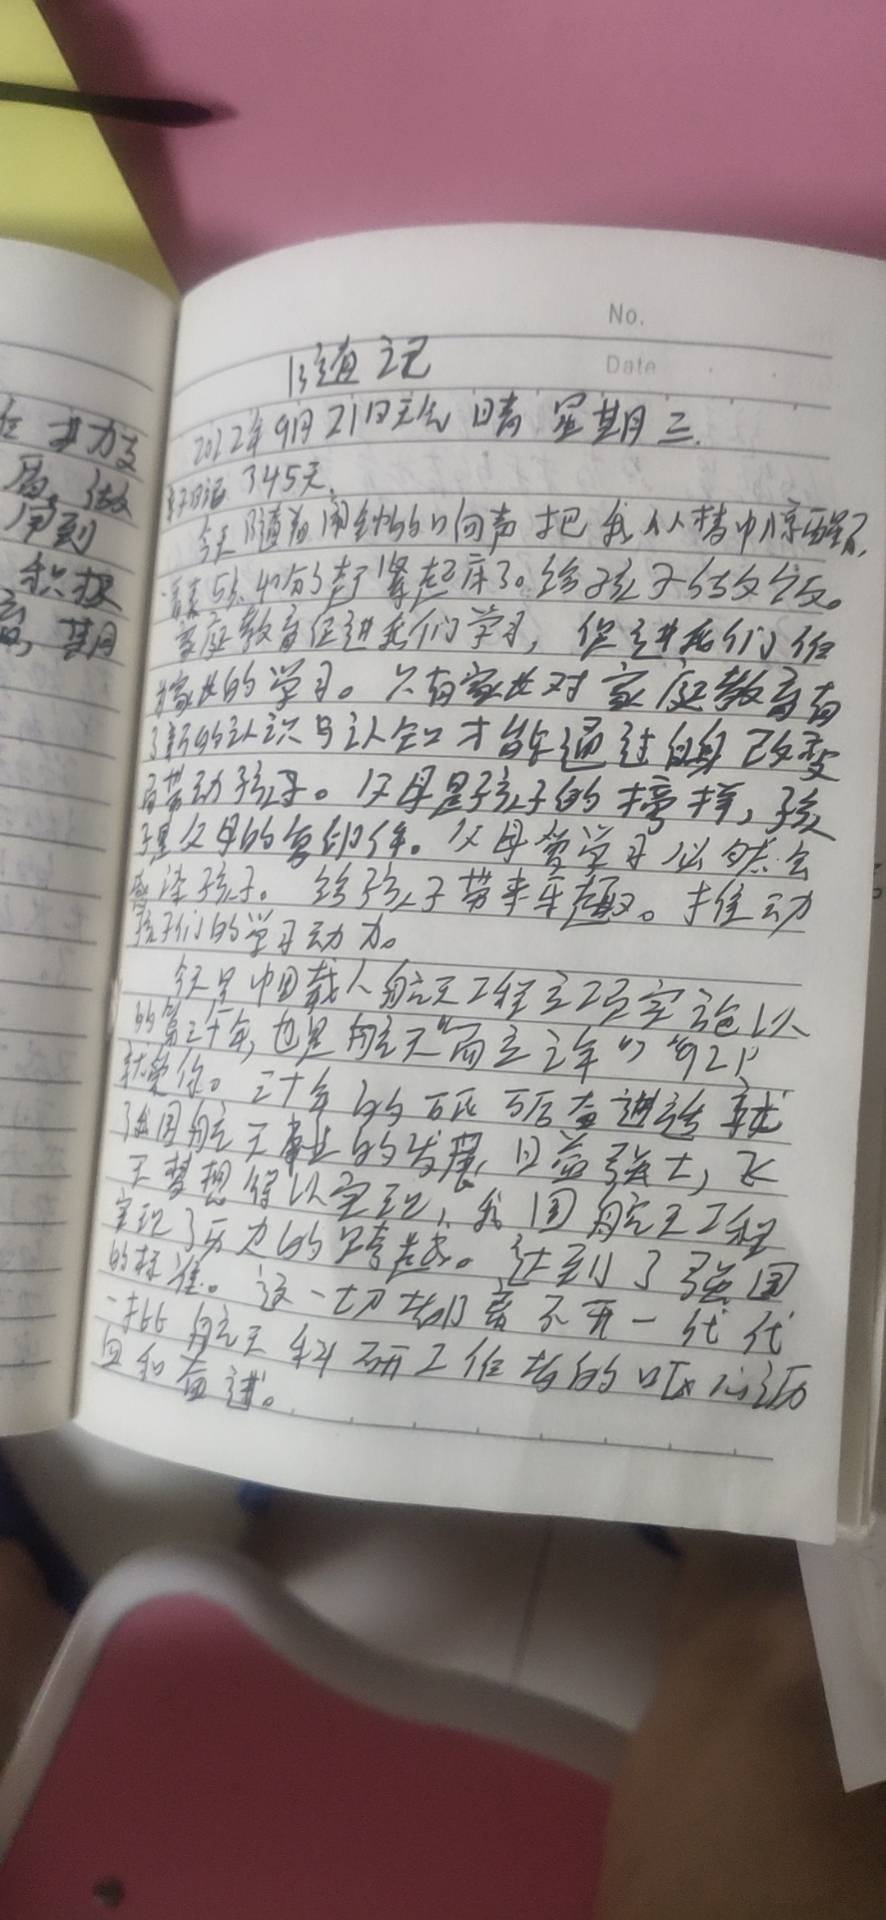 No.
Date
随记
2022年9月21日天气 晴 星期三.
亲子日记 345天.
今天随着闹钟的响声把我从梦中惊醒了,
一看表5点40分了赶紧起床了。给孩子做饭。
家庭教育促进我们学习, 促进我们作
为家长的学习。只有家长对家庭教育有
了新的认识与认知才能通过自身改变
而带动孩子。父母是孩子的榜样, 孩
子是父母的复印件。父母爱学习必然会
感染孩子。给孩子带来乐趣。推动
孩子们的学习动力。
今天是中国载人航天工程立项实施以
的第三十年, 也是航天"而立之年" "921"
就是你。三十年的砥砺奋进造就
了我国航天事业的发展日益强大, 飞
天梦想得以实现, 我国航天工程
实现了历史的跨越。达到了强国
的标准。这一切都离不开一代代
一批航天科研工作者的呕心沥
血和奋进。
任 努力
做
用到
积极
期